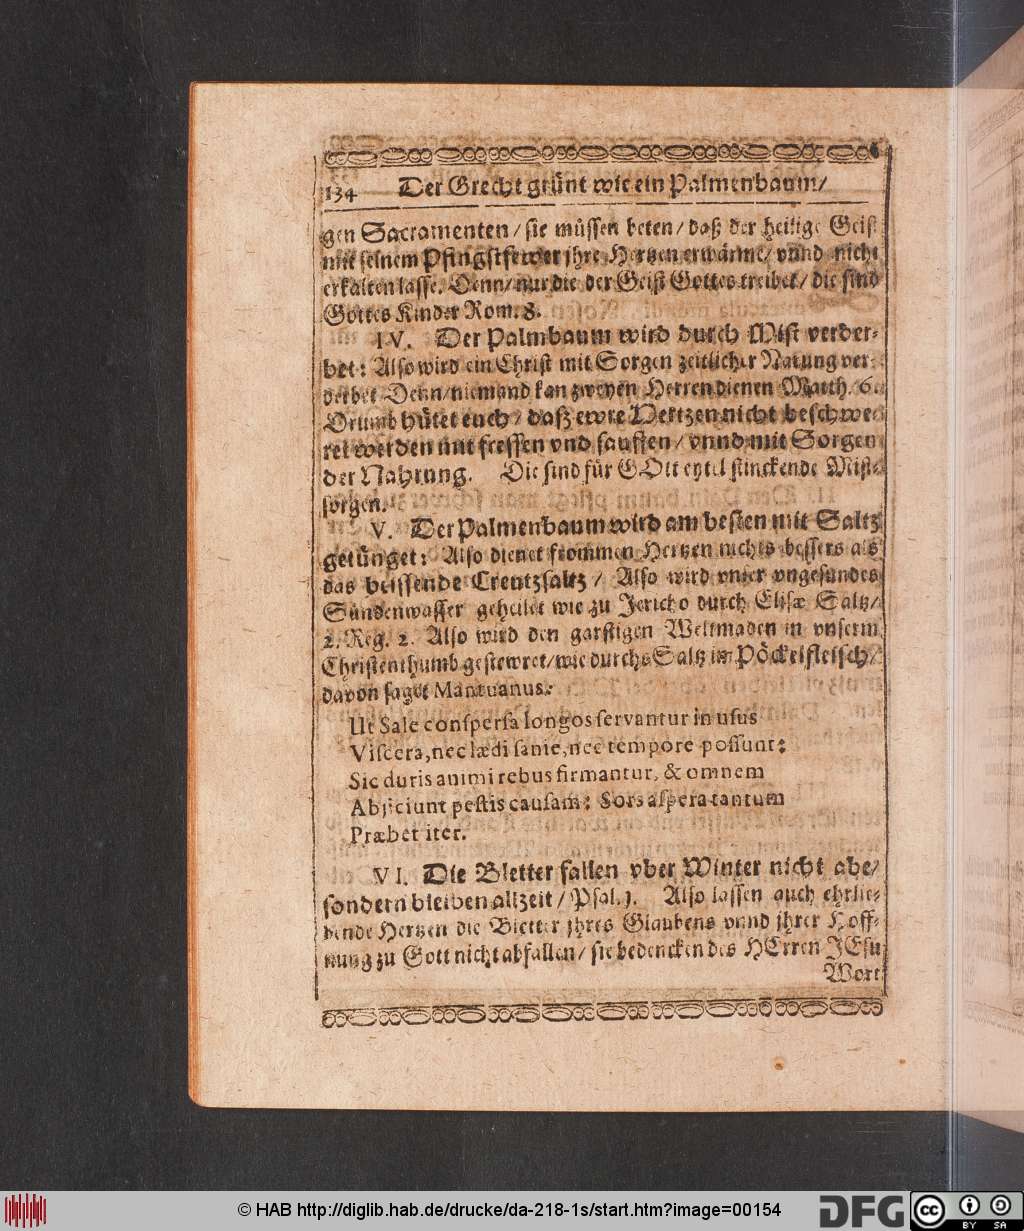 134 Der Grecht grünt wie ein Palmenbaum/
gen Sacramenten / sie müssen beten / daß der heilige Geist
mit seinem Pfingstfewer jhre Hertzen erwärme / vnnd nicht
erkalten lasse. Denn / nur die der Geist Gottes treibet / die sind
Gottes Kinder Rom. 8.
IV. Der Palmbaum wird durch Mist verder-
bet: Also wird ein Christ mit Sorgen zeitlicher Narung ver-
derbet Denn / niemand kan zweyen Herren dienen Matth. 6.
Drumb hütet euch / daß ewre Hertzen nicht beschwe-
ret werden mit fressen vnd sauffen / vnnd mit Sorgen
der Nahrung. Die sind für GOtt eytel stinckende Mist-
sorgen.
V. Der Palmenbaum wird am besten mit Saltz
getünget: Also dienet frommen Hertzen nichts bessers als
das beissende Creutzsaltz / Also wird vnser vngesundes
Sündenwasser geheilet wie zu Jericho durch Elisæ Saltz /
2. Reg. 2. Also wird den garstigen Weltmaden in vnserm
Christenthumb gestewret / wie durchs Saltz im Pöckelfleisch /
davon saget Mantuanus:
Ut Sale conspersa longos servantur in usus
Viscera, nec lædi sanie, nec tempore possunt:
Sic duris animi rebus firmantur, & omnem
Abjiciunt pestis causam: Sors aspera tantum
Præbet iter.
VI. Die Bletter fallen vber Winter nicht abe /
sondern bleiben allzeit / Psal. 1. Also lassen auch ehrlie-
bende Hertzen die Bletter jhres Glaubens vnnd jhrer Hoff-
nung zu Gott nicht abfallen / sie bedencken des HErren JEsu
Wort
© HAB http://diglib.hab.de/drucke/da-218-1s/start.htm?image=00154
DFG
cc BY SA